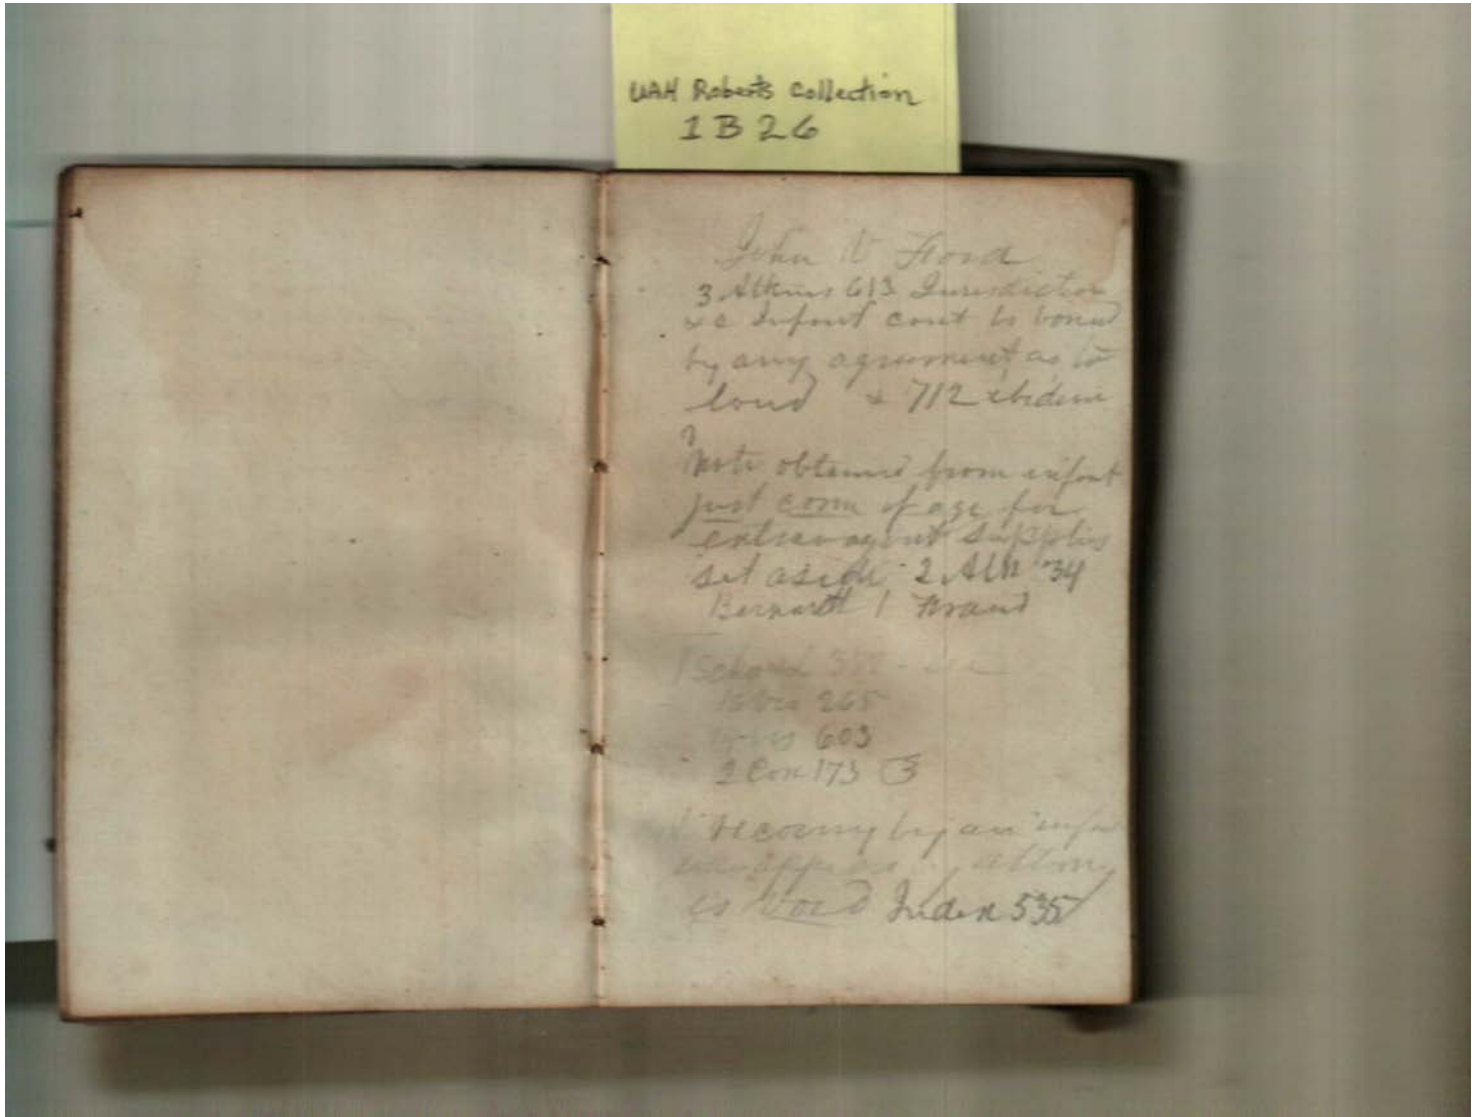 UAH Roberts Collection
1B26
John V Flood
3 Atkins 613 Jurisdiction
&c Infant cant be bound
by any agreement as to
land & 712 ibidem
Note obtained from infant
just come of age for
extravagant supplies
set aside 2 Atk 34
Barnard 1 Fraud
353
Ves 265
Ves 603
2 Cox 173
Recovery by an
is void Index 535